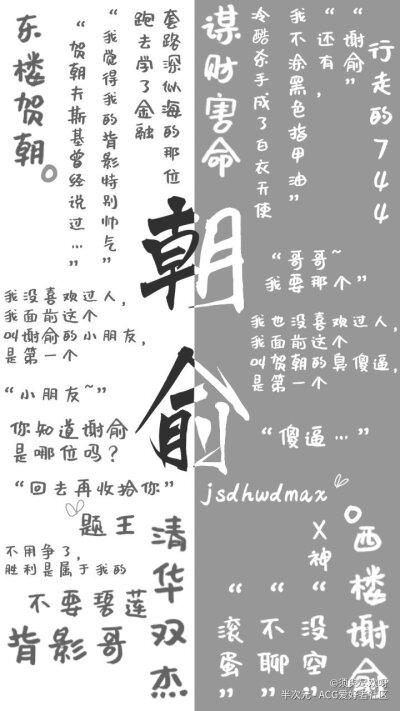 行走的744
“谢俞”
“还有，
我不涂黑色指甲油”
冷酷杀手成了白衣天使
谋财害命
套路深似海的那位
跑去学了金融
“我觉得我的背影特别帅气”
“贺朝夫斯基曾经说过…”
东楼贺朝。
朝俞
“哥哥~
我要那个”
我没喜欢过人，
我面前这个
叫谢俞的小朋友，
是第一个
我也没喜欢过人，
我面前这个
叫贺朝的臭傻逼，
是第一个
“小朋友~”
你知道谢俞
是哪位吗？
“傻逼…”
“回去再收拾你”
jsdhwdmax
题王
X神
不用争了，
胜利是属于我的
不要碧莲
背影哥
清华双杰
西楼谢俞
“没空”
“不聊”
“滚蛋”
半次元 - ACG爱好者社区